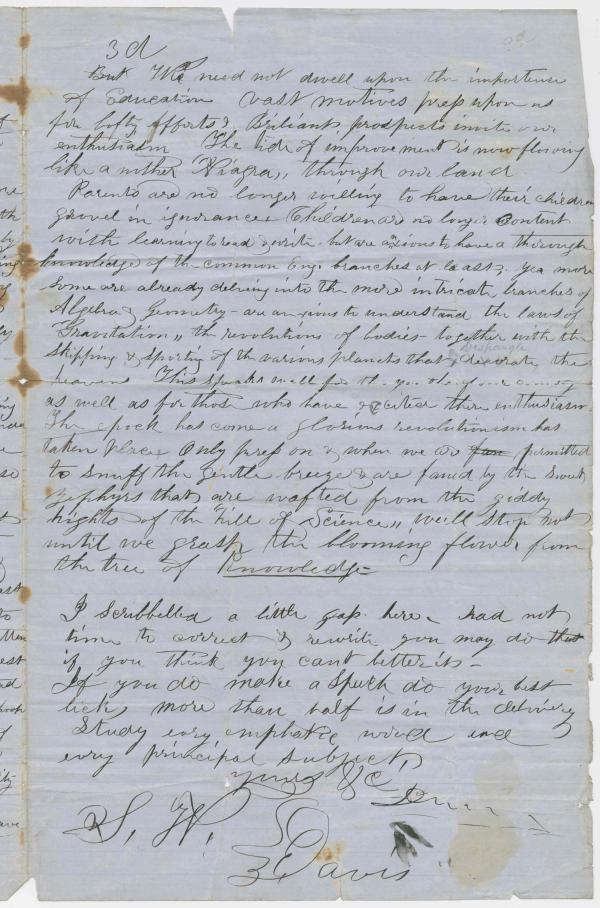 3d
But We need not dwell upon the importence
of Education vast motives press upon us
for lofty efforts & Biliant prospects invite our
enthutialm The tide of improvement is now flowing
like a nother Niagra,, through our land
Parents are no longer willing to have their children
grovel in ignorance Children are no longer content
with learning to read & write but are axious to have a thorough
knowledge of the common Eng. branches at least & yea more
some are already delving into the more intricate branches of
Algebra & Geometry - are anxious to understand the laws of
Gravitation,, the revolutions of bodies - together with the
skipping & sporting of the various planets that decorate the
heavens This speaks well for the of our
as well as for those who have excited there enthusiasm
The epock has come a glorius revolutionism has
taken place Only press on & when we are permitted
to snuff the gentle breeze & are faned by the sweet
zephyrs that are wafted from the giddy
hights of the Hill of Science,, we'll stop not
until we grasp the blooming flower from
the tree of Knowledge
I scribbelled a little gap here - had not
time to correct & rewrite you may do that
if you think you cant better its -
If you do make a speech do your best
licks more than half is in the delivery
Study evry emphatic word and
evry principal subject
yours &c
S. W.
Davis